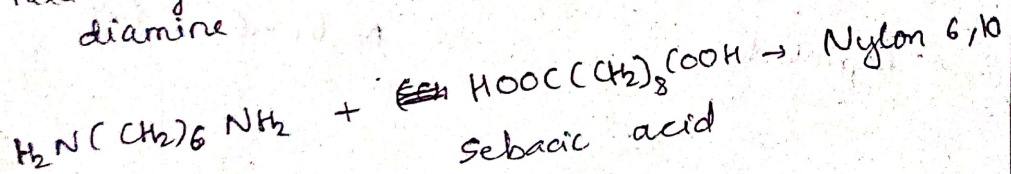 diamine
H₂N(CH₂)6 NH₂ + HOOC(CH₂)₈COOH → Nylon 6,10
Sebacic acid